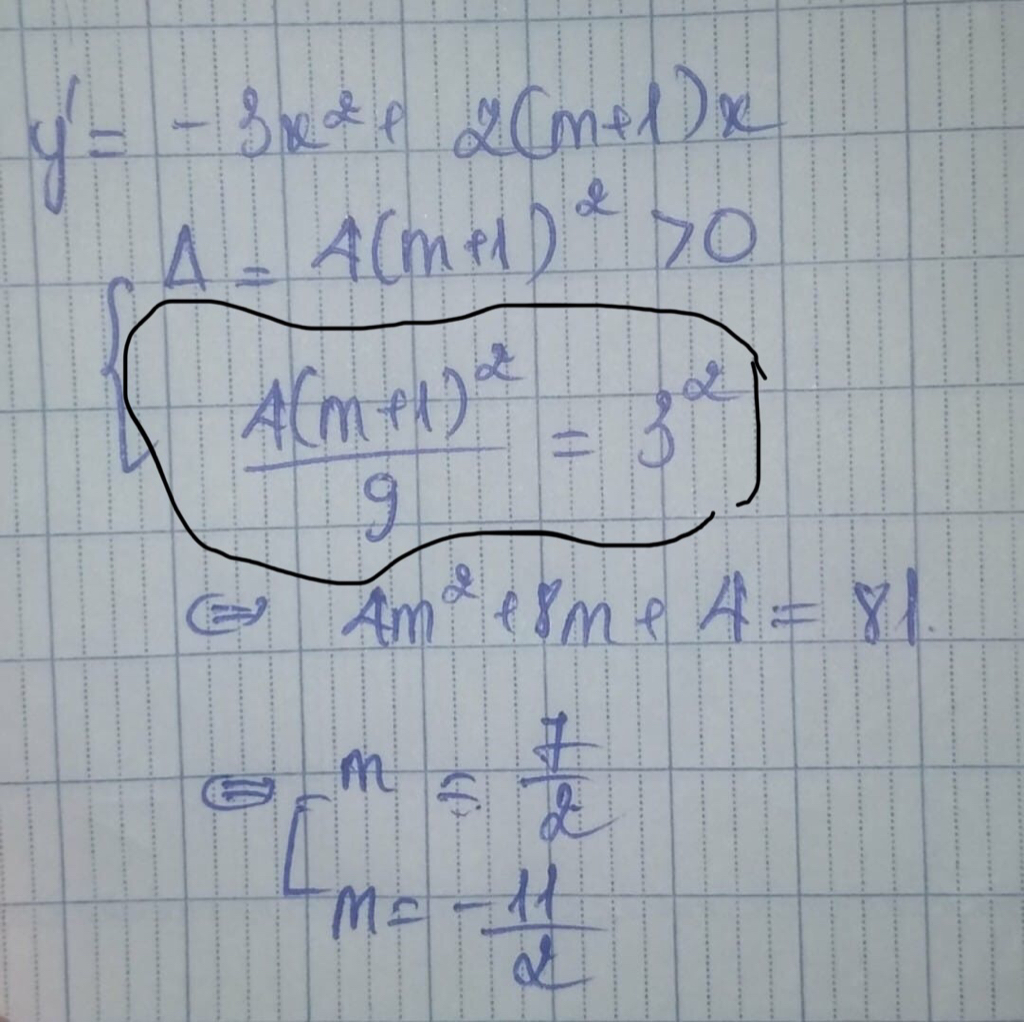 y' = -3x² + 2(m+1)x
Δ = 4(m+1)² >0
4(m+1)²/9 = 3²
⇔ 4m² + 8m + 4 = 81.
⇔ [ m = 7/2
m = -11/2